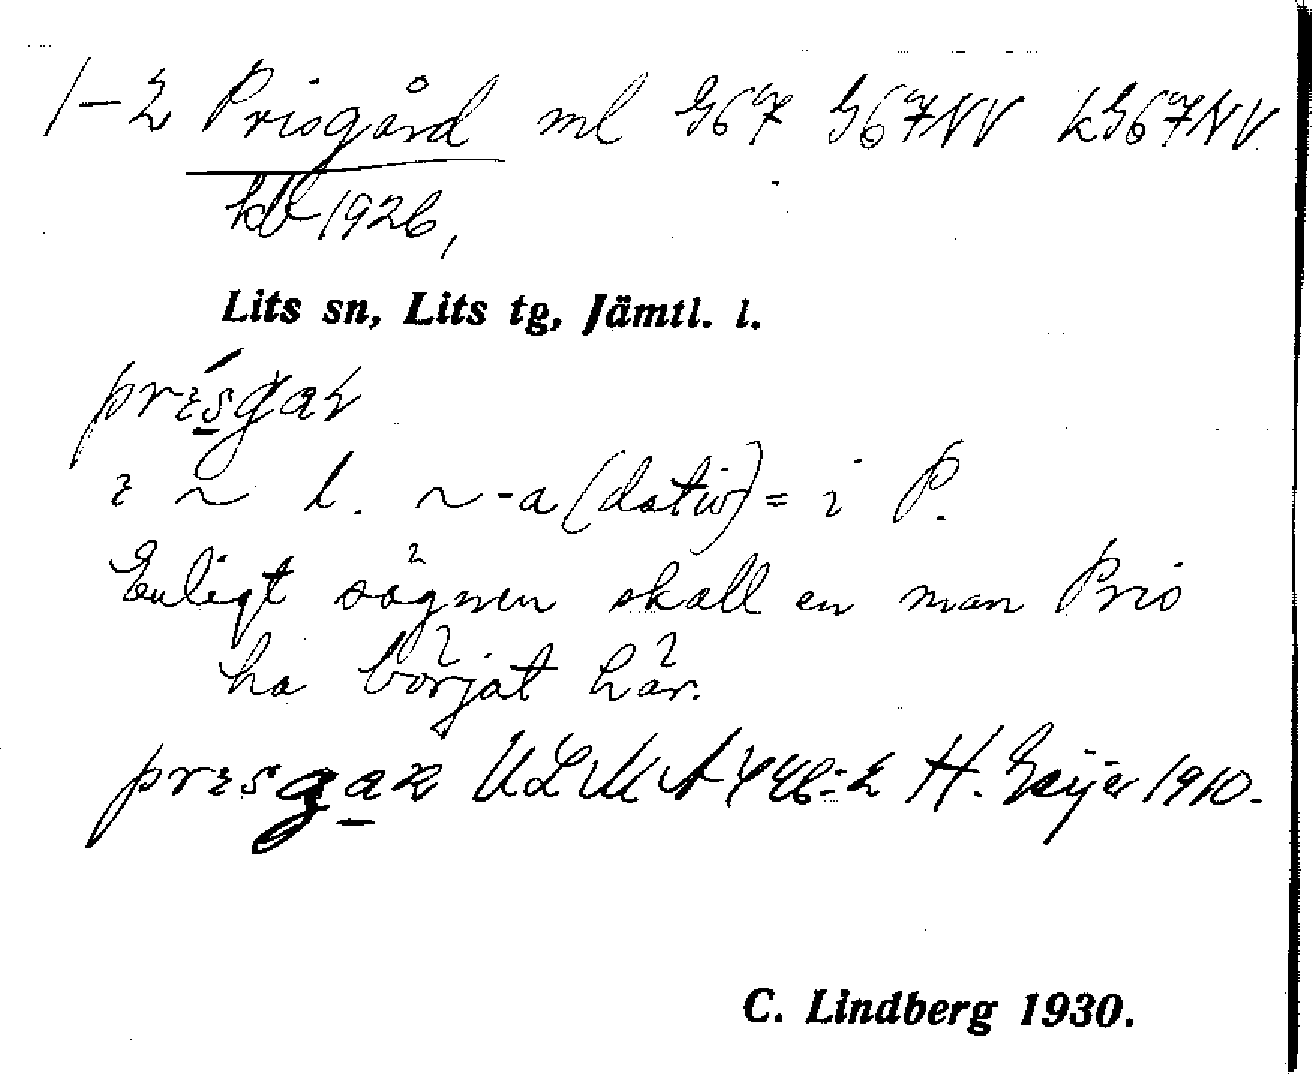 1-2 Prisgård ml G67 G67NV kG67NV
kbl 1926,
Lits sn, Lits tg, Jämtl. l.
i ~ l. ~-a (dativ) = i P.
Enligt sägnen skall en man Pris
ha börjat här.
ULMA 446:2 H. Geijer 1910.
C. Lindberg 1930.